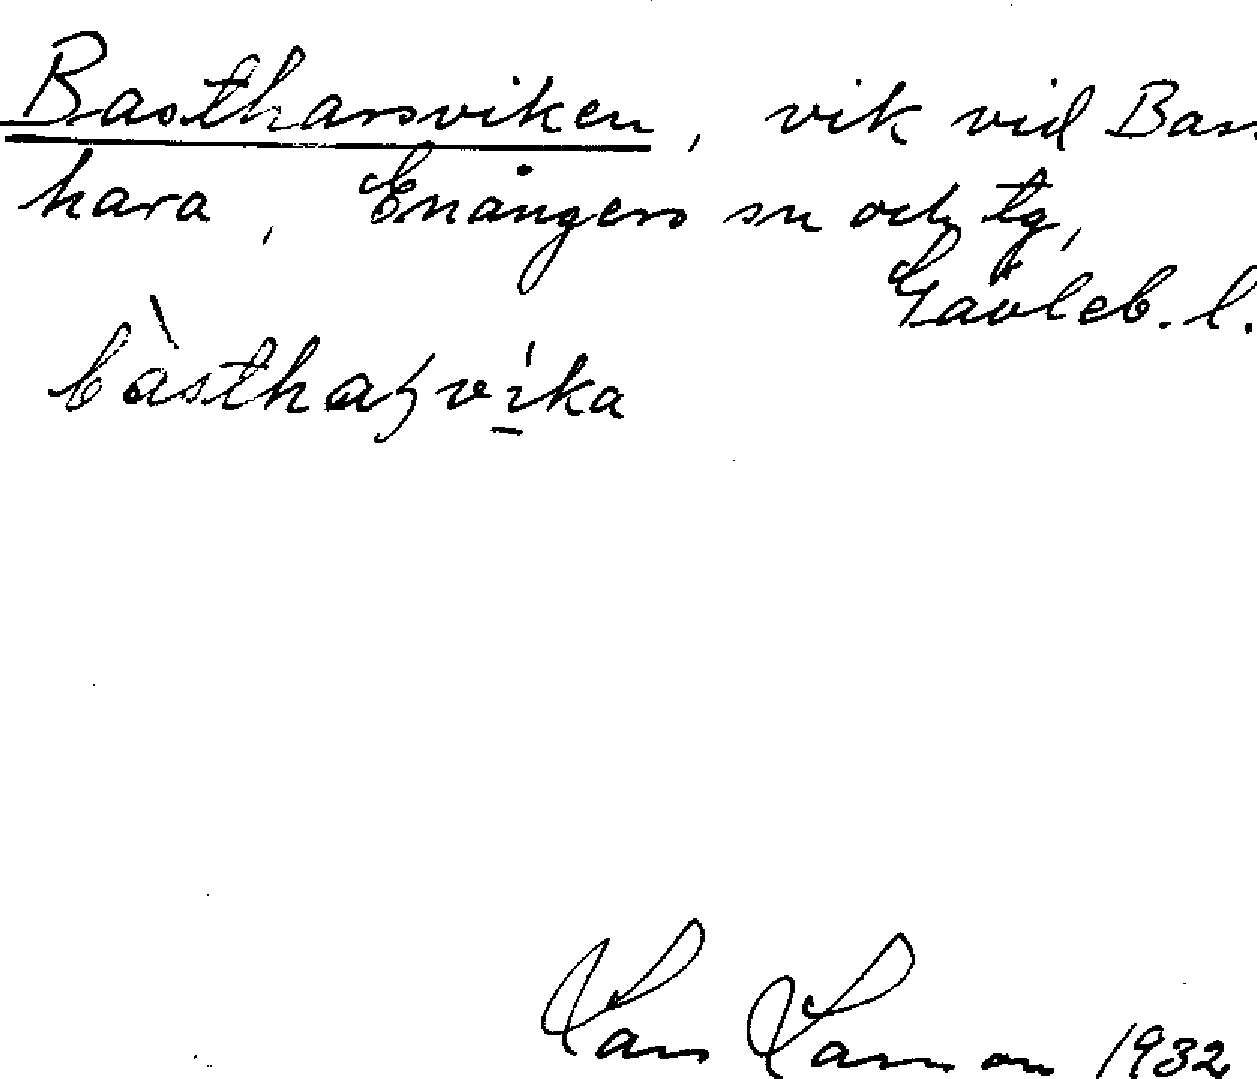 Bastharsviken, vik vid Bas
hara, Enångers sn och tg,
Gävleb. l.
bàsthaʂvika
Lars Larsson 1932